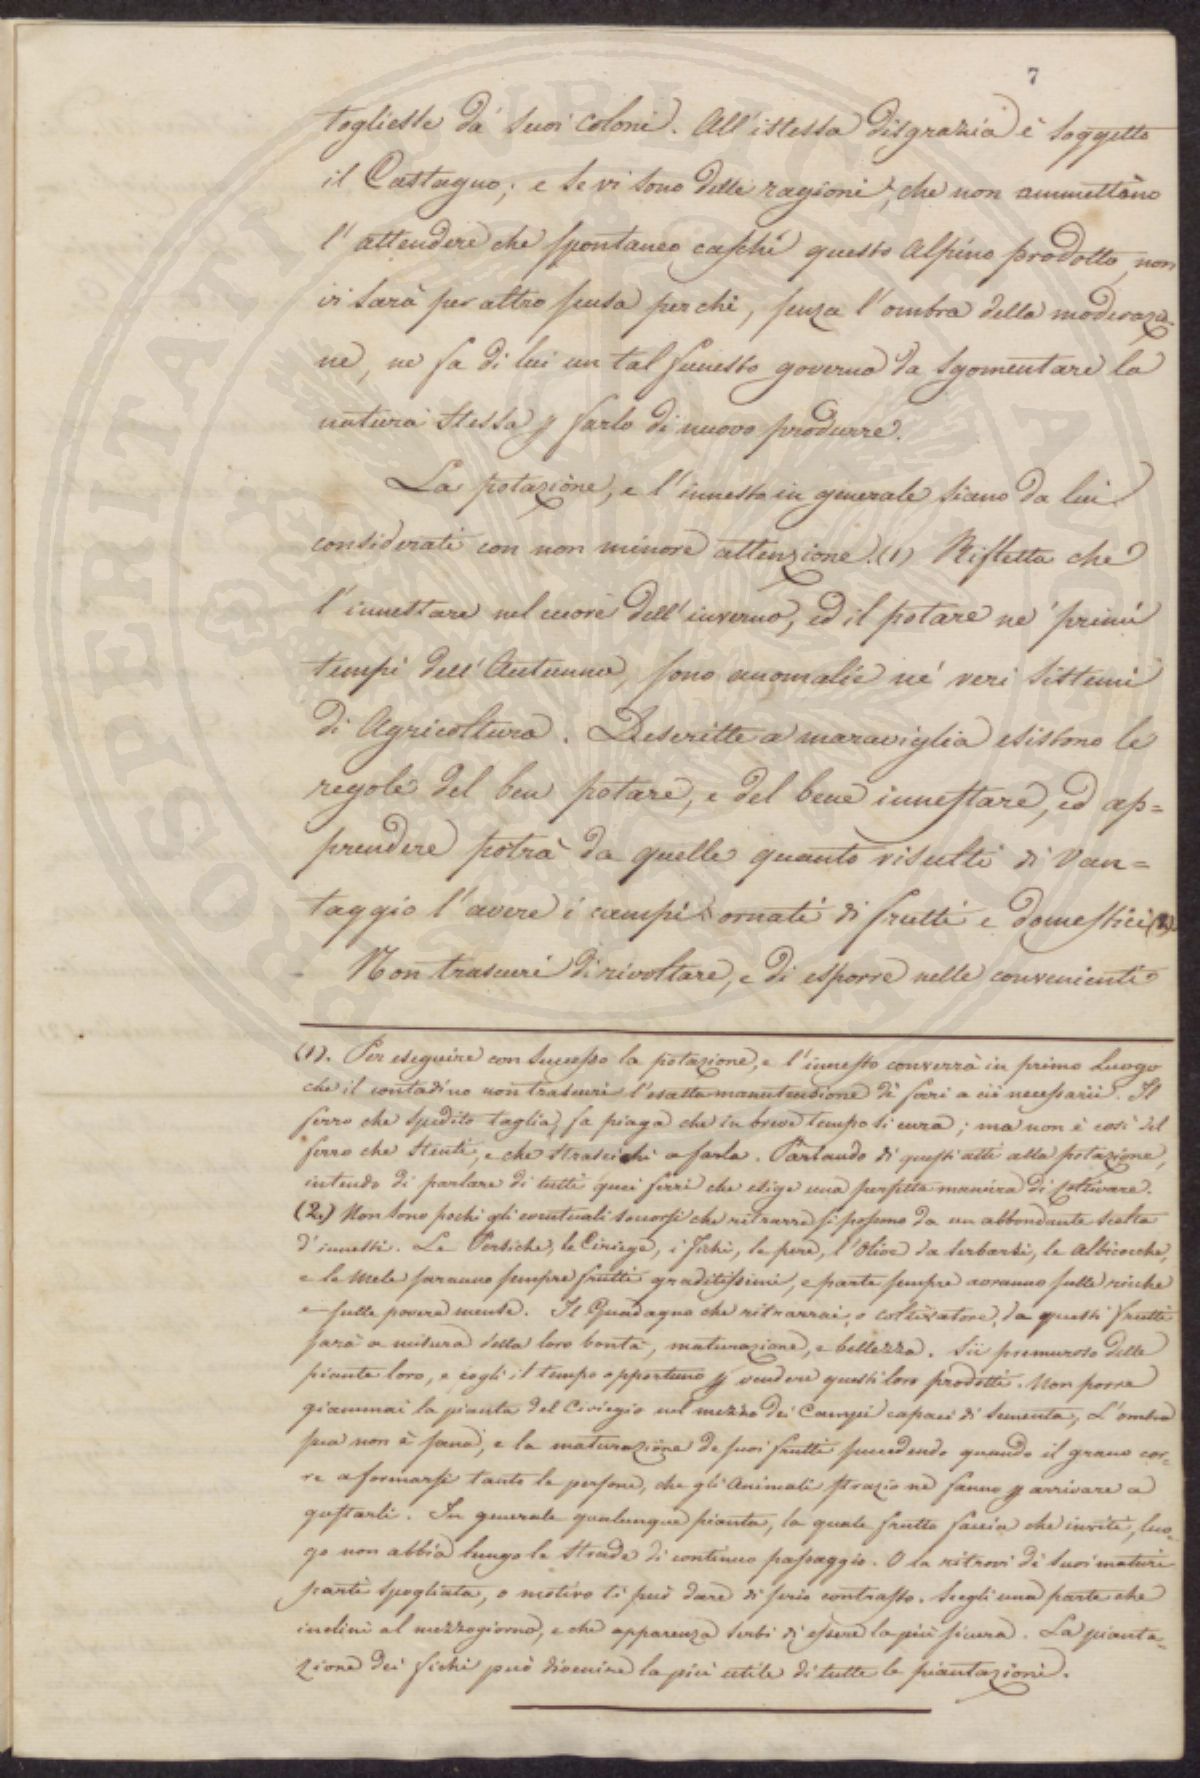 7
togliesse da' suoi coloni. All'istessa disgrazia è soggetto
il Castagno; e se vi sono delle ragioni, che non ammettano
l'attendere che spontaneo caschi questo Alpino prodotto, non
vi sarà per altro scusa perchè, senza l'ombra della moderazio-
ne, ne fa di lui un tal funesto governo da sgomentare la
natura stessa p farlo di nuovo produrre.
La potazione, e l'innesto in generale siano da lui
considerati con non minore attenzione.(1) Rifletta che
l'innestare nel cuore dell'inverno, ed il potare ne' primi
tempi dell'Autunno, sono anomalie ne' veri sistemi
di Agricoltura. Descritte a maraviglia esistono le
regole del ben potare, e del bene innestare, ed ap=
prendere potrà da quelle quanto risulti di van=
taggio l'avere i campi ornati di frutti e domestici (2).
Non trascuri di rivoltare, e di esporre nelle convenienti
(1). Per eseguire con successo la potazione, e l'innesto converrà in primo luogo
che il contadino non trascuri l'esatta manutenzione di ferri a ciò necessarii. Il
ferro che spedito taglia, fa piaga che in breve tempo si cura; ma non è così del
ferro che stenti, e che strascichi a farla. Parlando di questi atti alla potazione,
intendo di parlare di tutti quei ferri che esige una perfetta maniera di coltivare.
(2.) Non sono pochi gli eventuali soccorsi che ritrarre si possono da un abbondante scelta
d'innesti. Le Persiche, le Ciriege, i Fichi, le pere, l'Olive da serbarsi, le Albicocche,
e le Mele saranno sempre frutti graditissimi, e parte sempre avranno sulle ricche
e sulle povere mense. Il Guadagno che ritrarrai, o coltivatore, da questi frutti
sarà a misura della loro bontà, maturazione, e bellezza. Sii premuroso delle
piante loro, e cogli il tempo opportuno p vendere questi loro prodotti. Non porre
giammai la pianta del Ciriegio nel mezzo dei Campi capaci di sementa, L'ombra
sua non è sana, e la maturazione de suoi frutti succedendo quando il grano cor-
re a formarsi tanto le persone, che gli Animali strazio ne fanno p arrivare a
gustarli. In generale qualunque pianta, la quale frutto faccia che inviti, luo-
go non abbia lungo le strade di continuo passaggio. O la ritrovi di suoi maturi
parti spogliata, o motivo ti può dare di serio contrasto. Scegli una parte che
inclini al mezzogiorno, e che apparenza serbi di essere la più sicura. La pianta-
zione dei fichi può divenire la più utile di tutte le piantazioni.
PROSPERITATI PVBLICAE AVGENDAE